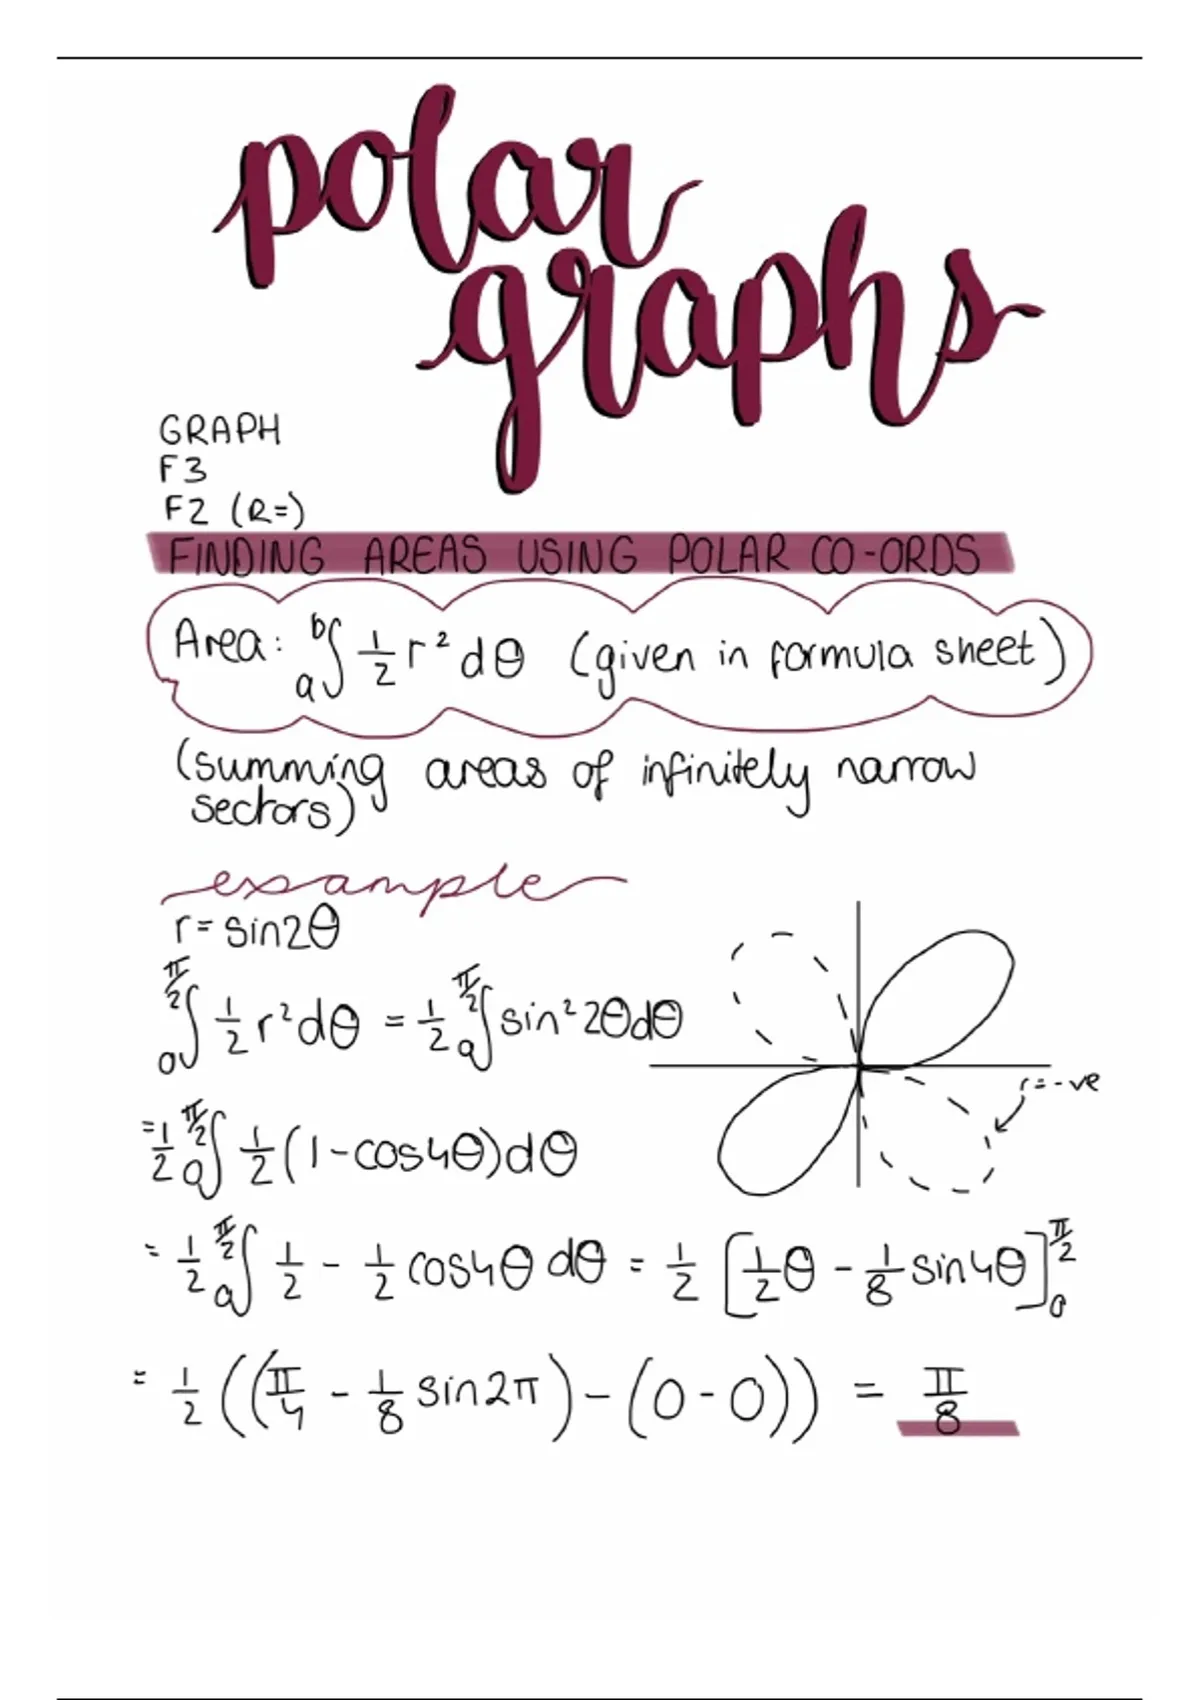 polar
graphs
GRAPH
F3
F2 (R=)
FINDING AREAS USING POLAR CO-ORDS
Area: ᵇ∫ₐ ½ r² dθ (given in formula sheet)
(summing areas of infinitely narrow
sectors)
example
r = sin2θ
^{π/2}∫₀ ½ r² dθ = ½ ^{π/2}∫₀ sin² 2θdθ
r = -ve
= ½ ^{π/2}∫₀ ½ (1 - cos4θ) dθ
= ½ ^{π/2}∫₀ ½ - ½ cos4θ dθ = ½ [½θ - ⅛ sin4θ]₀^{π/2}
= ½ ((π/4 - ⅛ sin2π) - (0 - 0)) = π/8